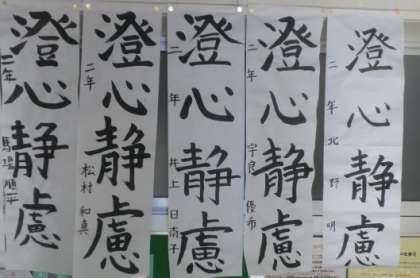 澄心静慮
二年 北野 明
澄心静慮
二年 宇良 優希
澄心静慮
二年 井上 日南子
澄心静慮
二年 松村 和真
澄心静慮
三年 馬場 順平